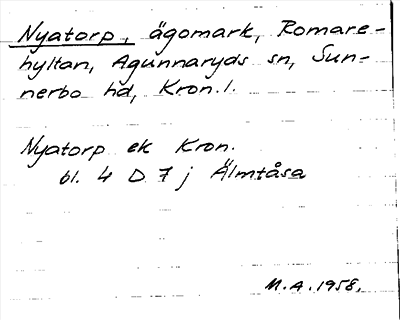 Nyatorp, ägomark, Romare-
hyltan, Agunnaryds sn, Sun-
nerbo hd, Kron.l.
Nyatorp ek Kron.
bl. 4 D 7 j Älmtåsa
M.A. 1958.